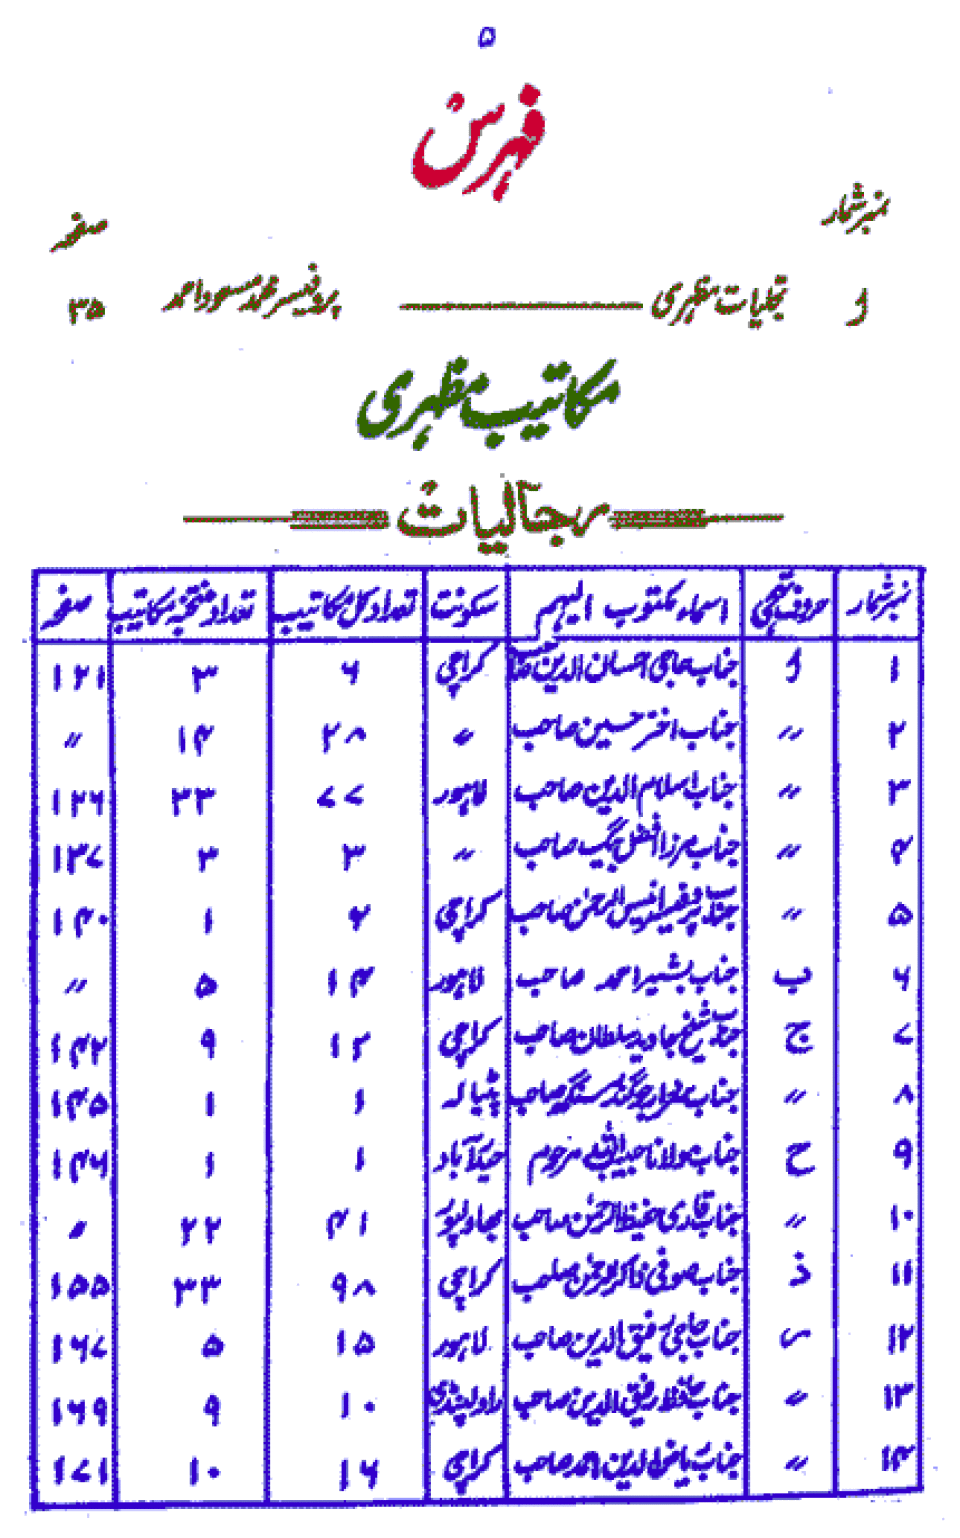 ۵
فہرس
نمبر شمار صفحہ
ا تجلیات مظہری پروفیسر محمد مسعود احمد ۳۵
مکاتیب مظہری
رجالیات
نمبر شمار حروف تہجی اسماء مکتوب الیہم سکونت تعداد کل مکاتیب تعداد منتخبہ مکاتیب صفحہ
۱ ا جناب حاجی احسان الدین صاحب کراچی ۶ ۳ ۱۲۱
۲ 〃 جناب اختر حسین صاحب 〃 ۲۸ ۱۴ 〃
۳ 〃 جناب اسلام الدین صاحب لاہور ۷۷ ۳۳ ۱۲۶
۴ 〃 جناب مرزا افضل بیگ صاحب 〃 ۳ ۳ ۱۳۷
۵ 〃 جناب پروفیسر انیس الرحمٰن صاحب کراچی ۲ ۱ ۱۴۰
۶ ب جناب بشیر احمد صاحب لاہور ۱۴ ۵ 〃
۷ ج جناب شیخ جاوید سلطان صاحب کراچی ۱۲ ۹ ۱۴۲
۸ 〃 جناب جوگندر سنگھ صاحب پٹیالہ ۱ ۱ ۱۴۵
۹ ح جناب مولانا مرحوم حیدرآباد ۱ ۱ ۱۴۶
۱۰ 〃 جناب قاری حفیظ الرحمٰن صاحب بھاولپور ۴۱ ۲۲ 〃
۱۱ ذ جناب صوفی ذاکر الرحمٰن صاحب کراچی ۹۸ ۳۳ ۱۵۵
۱۲ ر جناب حاجی رفیق الدین صاحب لاہور ۱۵ ۵ ۱۶۷
۱۳ 〃 جناب حافظ رفیق الدین صاحب راولپنڈی ۱۰ ۹ ۱۶۹
۱۴ 〃 جناب ریاض الدین احمد صاحب کراچی ۱۶ ۱۰ ۱۷۱